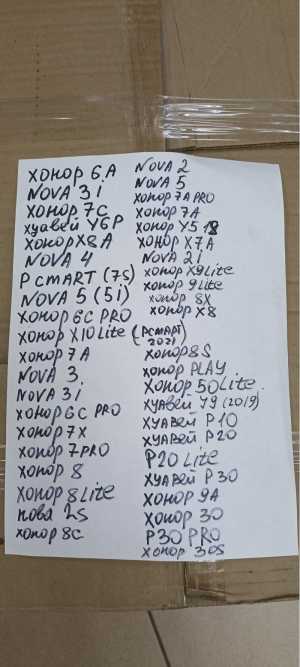 хонор 6А
NOVA 3i
хонор 7С
хуавей Y6P
хонор X8A
NOVA 4
P смART (7S)
NOVA 5 (5i)
хонор 6С PRO
хонор X10 Lite (РСМАРТ 2021)
хонор 7А
NOVA 3
NOVA 3i
хонор 6С PRO
хонор 7X
хонор 7PRO
хонор 8
хонор 8Lite
нова 2S
хонор 8С
NOVA 2
NOVA 5
хонор 7А PRO
хонор 7А
хонор Y5 18
хонор X7A
NOVA 2i
хонор X9Lite
хонор 9Lite
хонор 8X
хонор X8
хонор 8S
хонор PLAY
хонор 50Lite
хуавей Y9 (2019)
хуавей P10
хуавей P20
P20 Lite
хуавей P30
хонор 9А
хонор 30
P30 PRO
хонор 30S